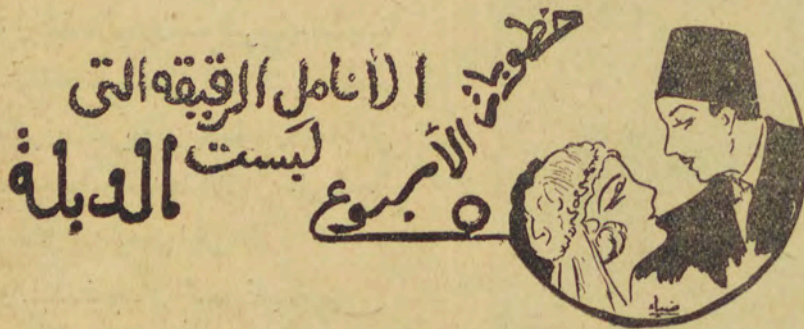 خطوبات الأسبوع
الأنامل الرقيقة التى
لبست الدبلة
ضياء